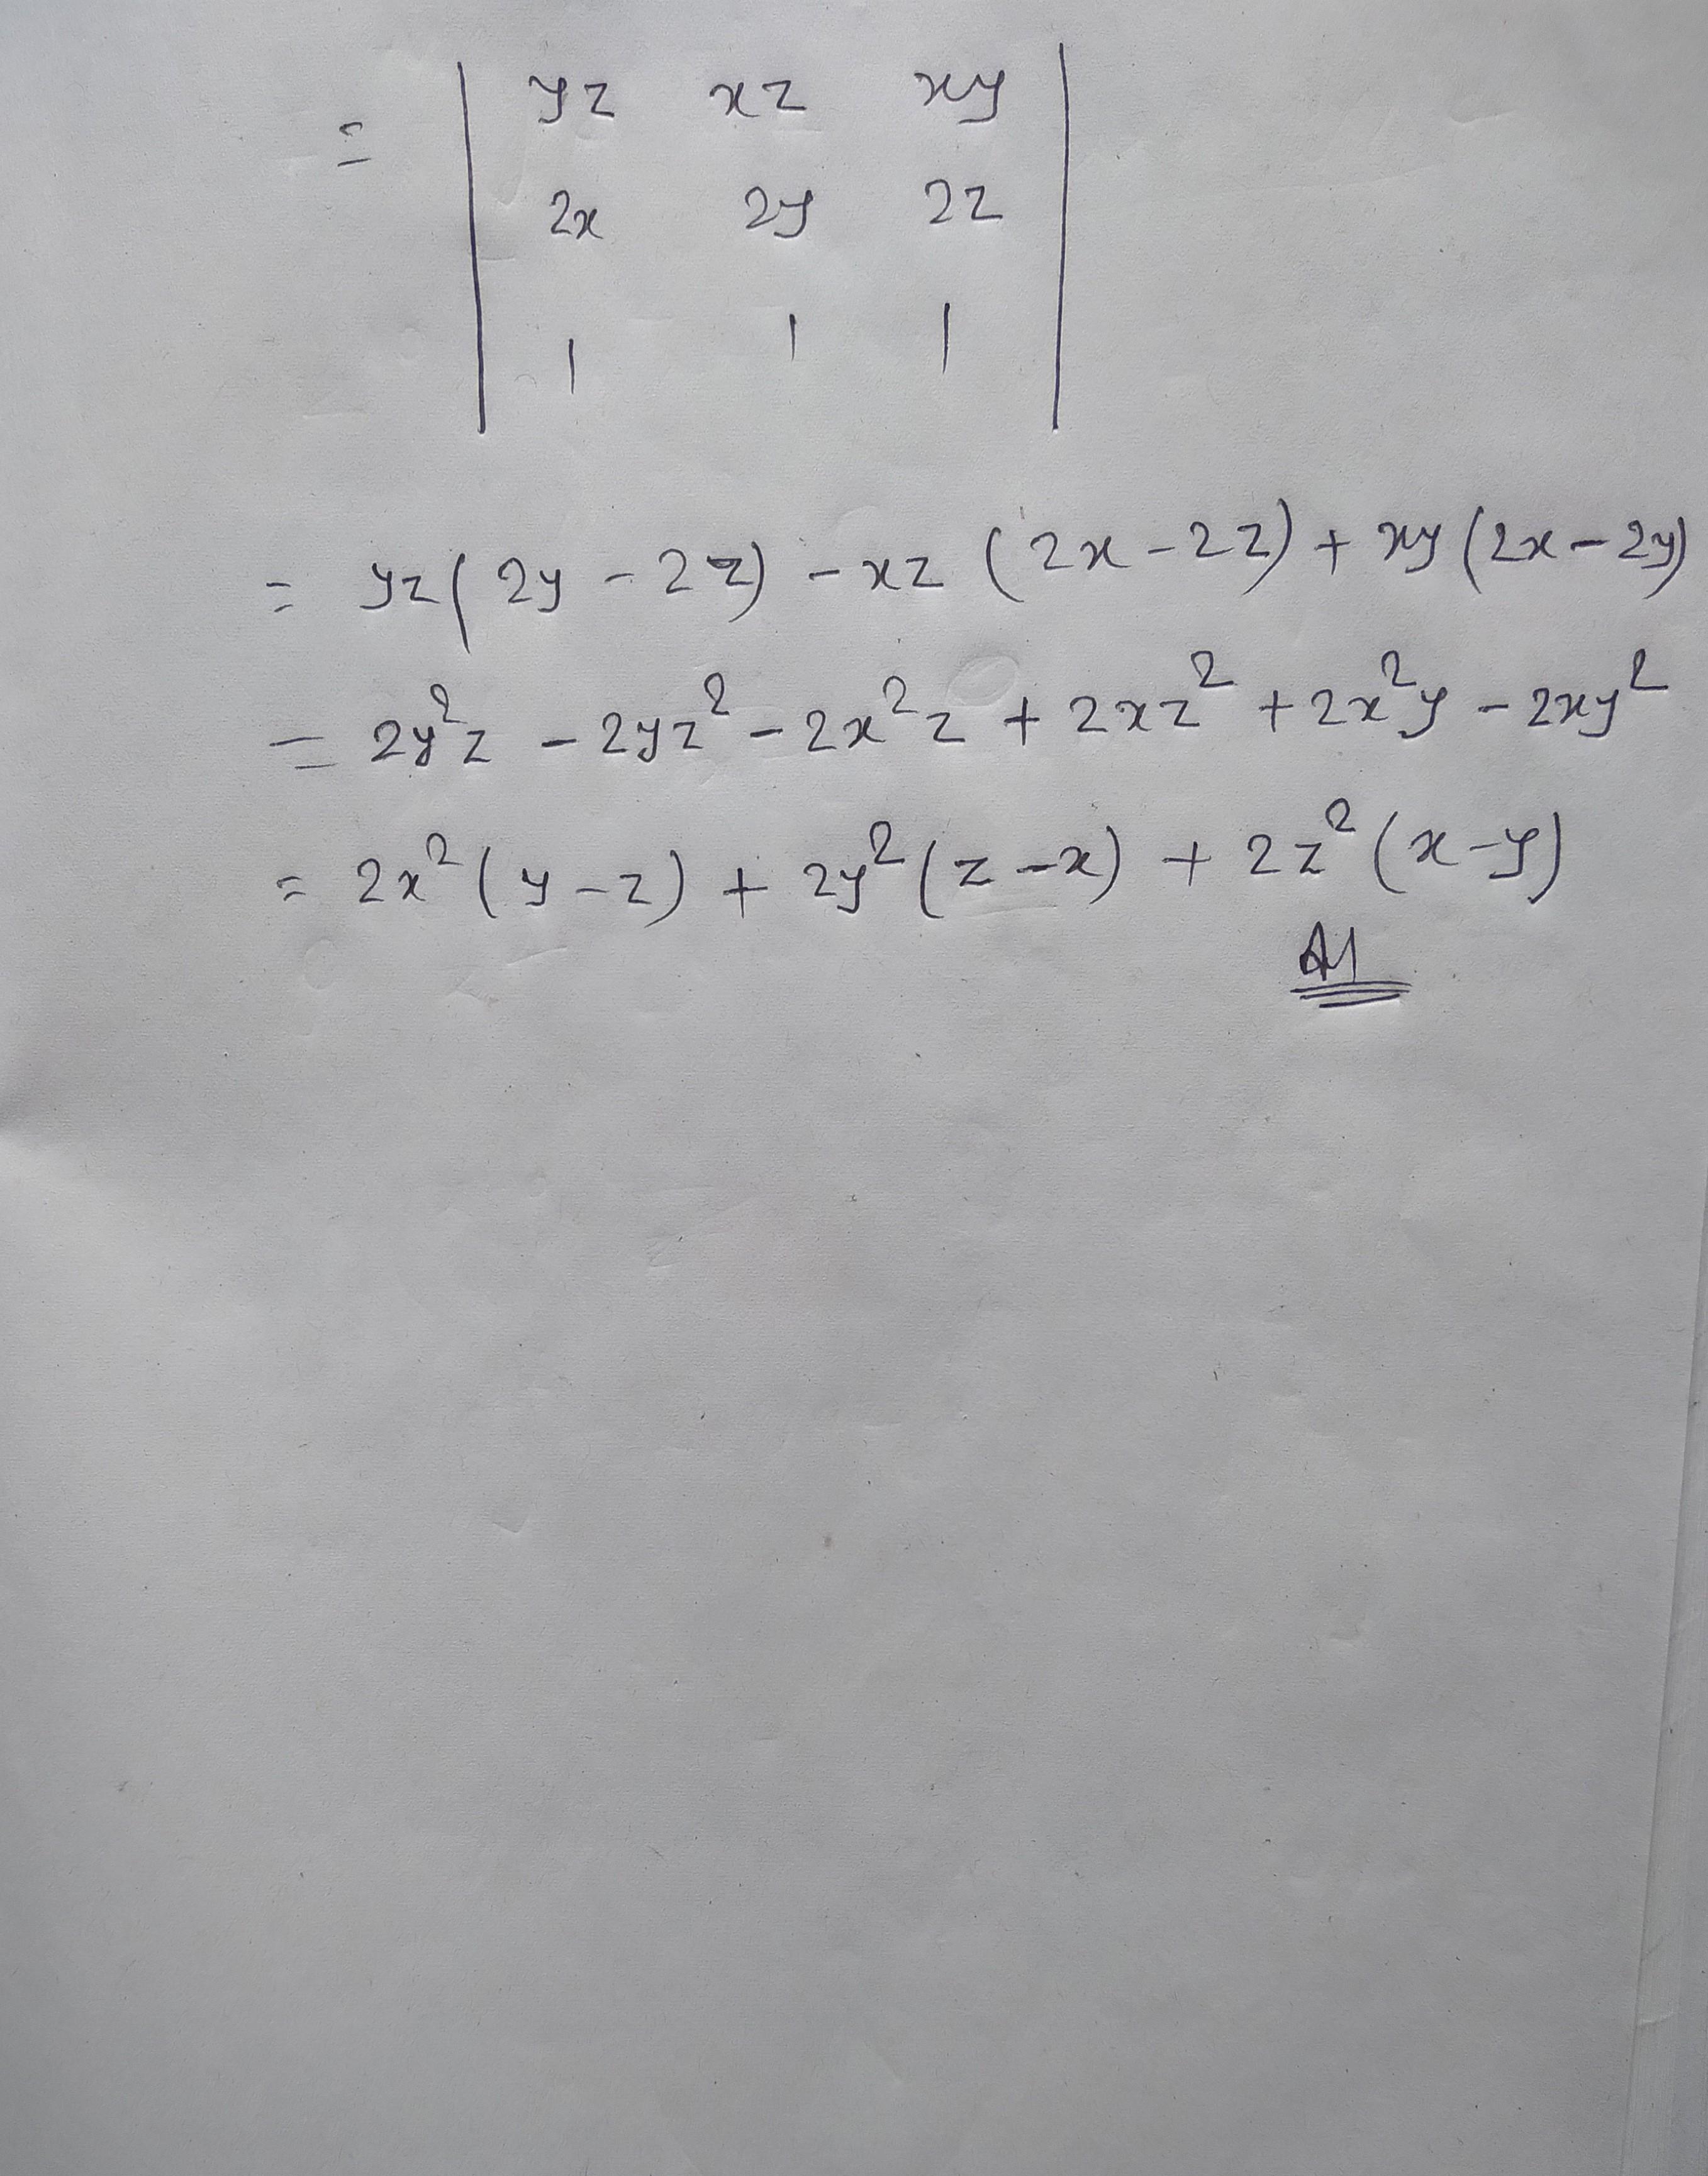 = | yz xz xy |
| 2x 2y 2z |
| 1 1 1 |
= yz(2y - 2z) - xz (2x - 2z) + xy(2x - 2y)
= 2y²z - 2yz² - 2x²z + 2xz² + 2x²y - 2xy²
= 2x²(y - z) + 2y²(z - x) + 2z²(x - y)